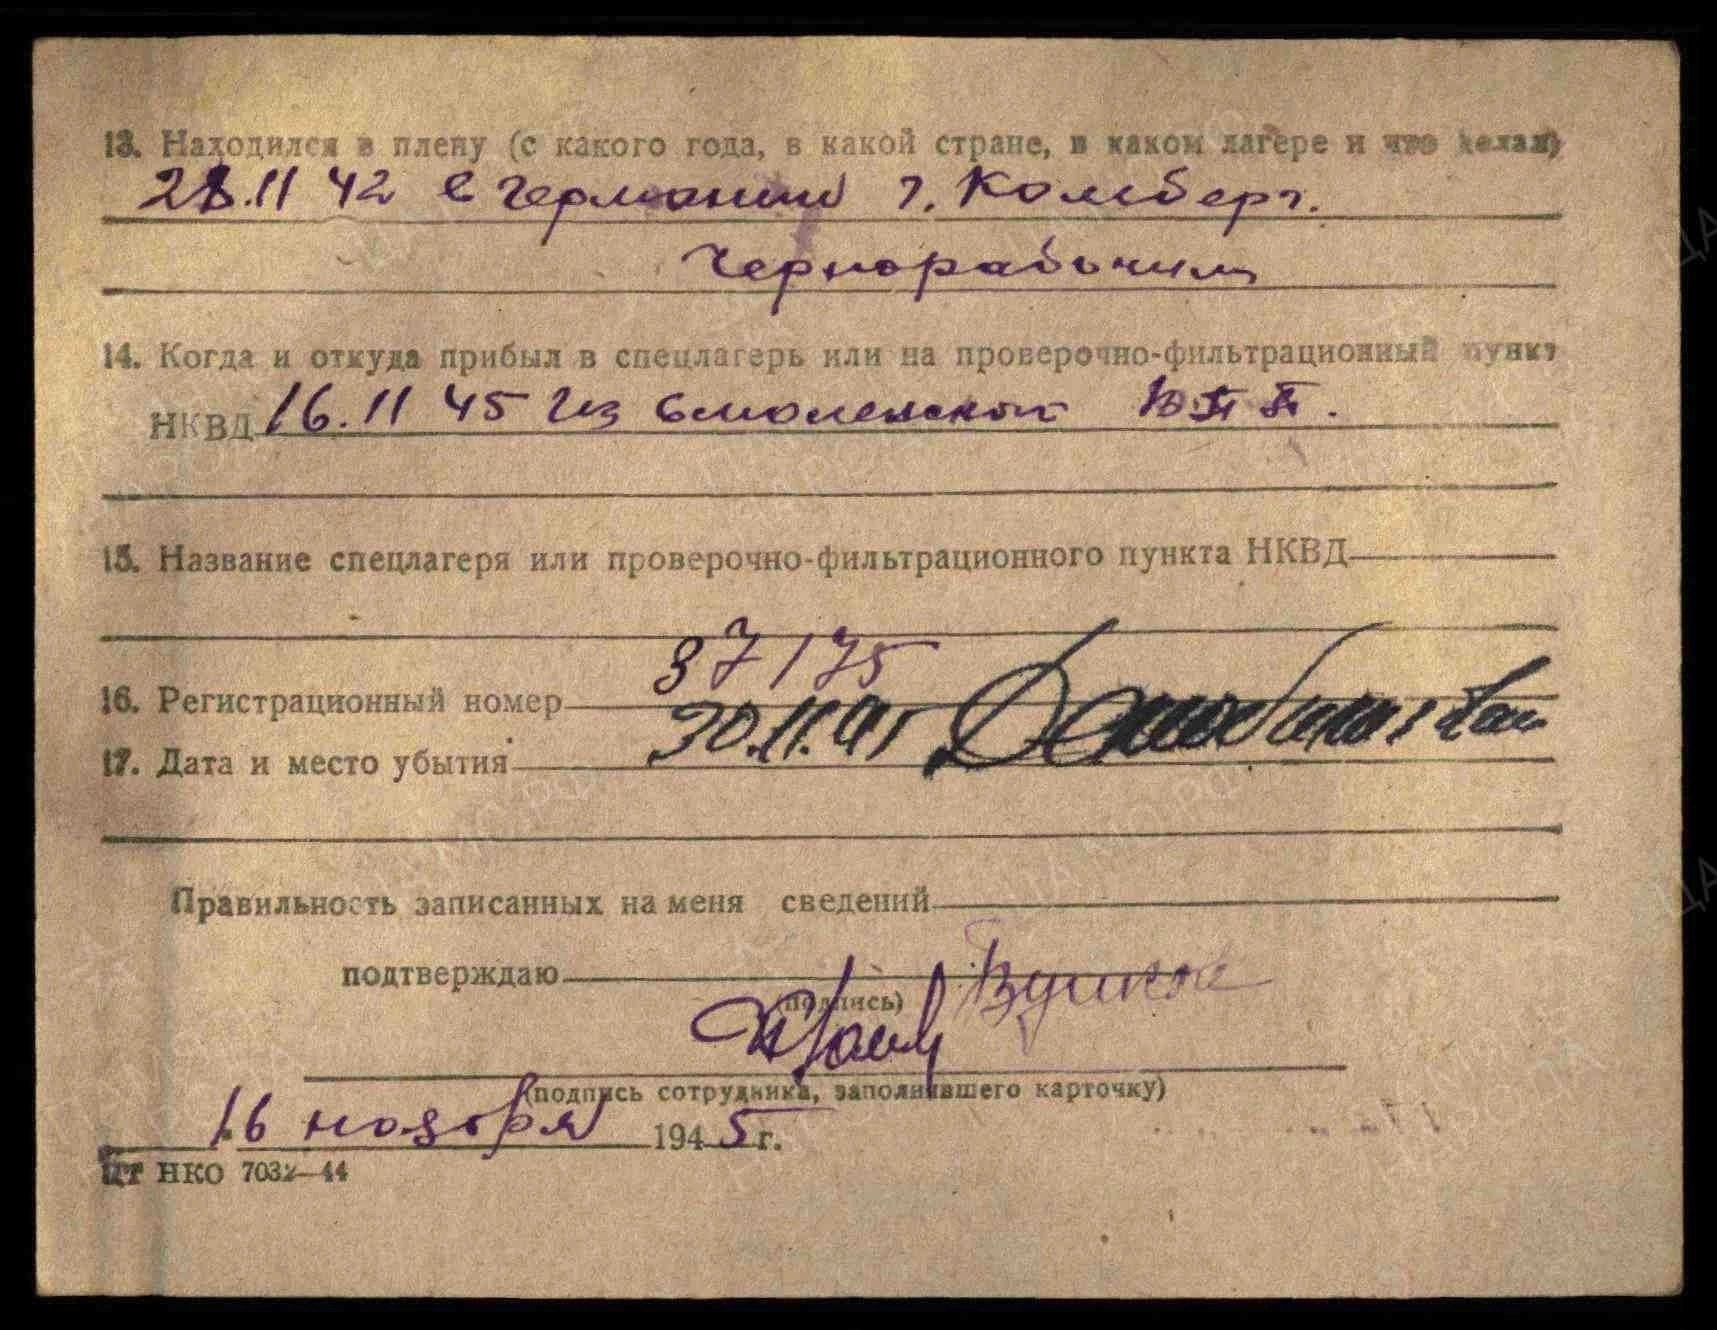 13. Находился в плену (с какого года, в какой стране, в каком лагере и что делал)
28.11 42 в германии г. Комберг.
Чернорабочим
14. Когда и откуда прибыл в спецлагерь или на проверочно-фильтрационный пункт
НКВД 16.11 45 из смоленского ВПП.
15. Название спецлагеря или проверочно-фильтрационного пункта НКВД
37175
16. Регистрационный номер
30.11.45
17. Дата и место убытия
Правильность записанных на меня сведений
подтверждаю
(подпись)
(подпись сотрудника, заполнявшего карточку)
16 ноября 1945 г.
ЦТ НКО 7032—44